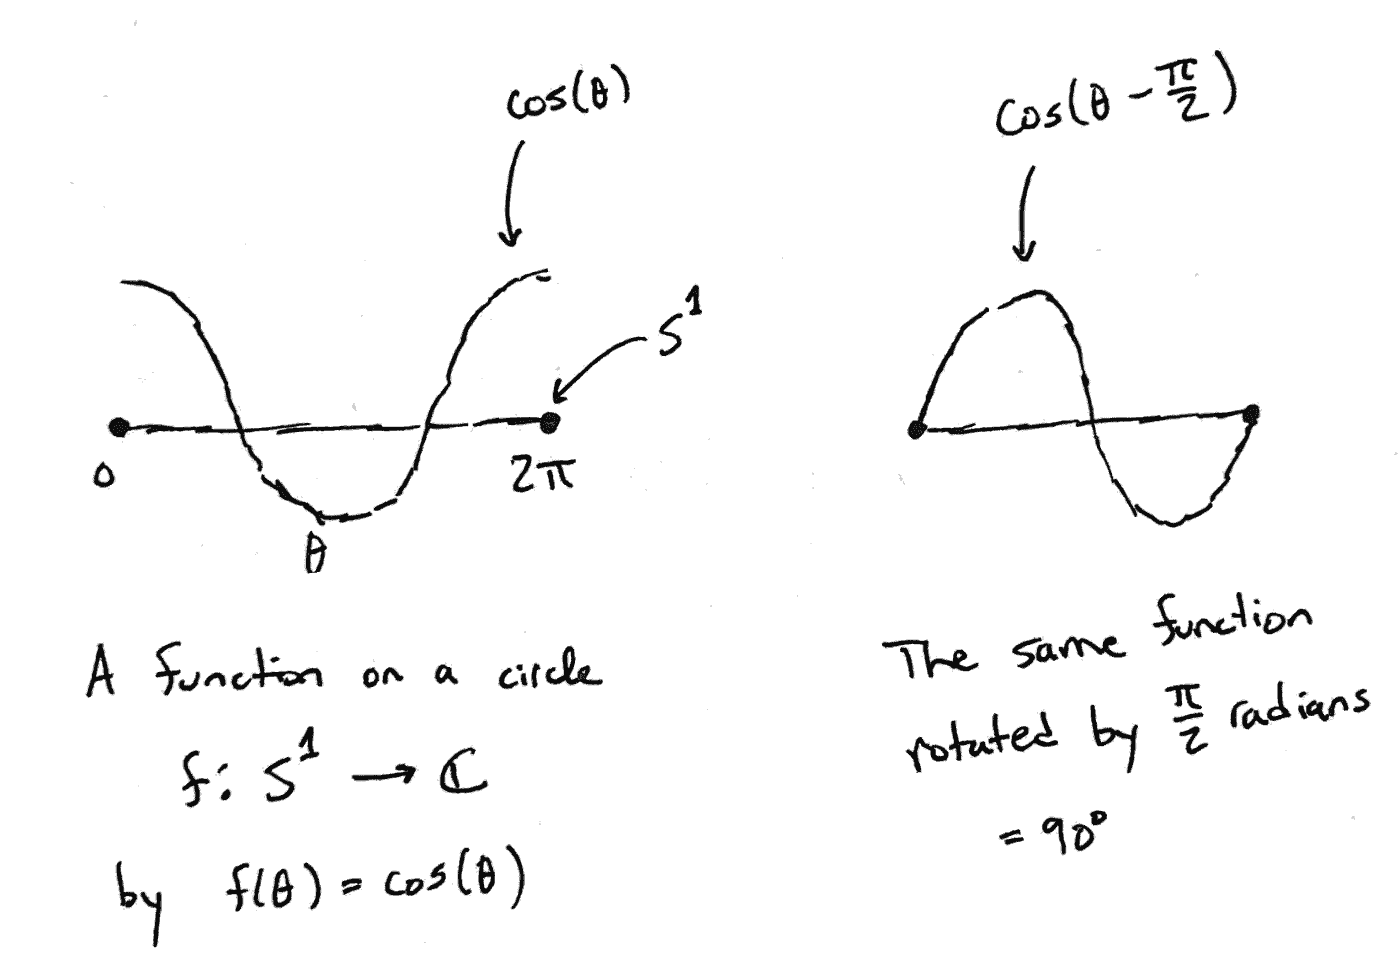 cos(θ)
S¹
0
2π
θ
A function on a circle
f: S¹ → ℂ
by f(θ) = cos(θ)
cos(θ - π/2)
The same function
rotated by π/2 radians
= 90°